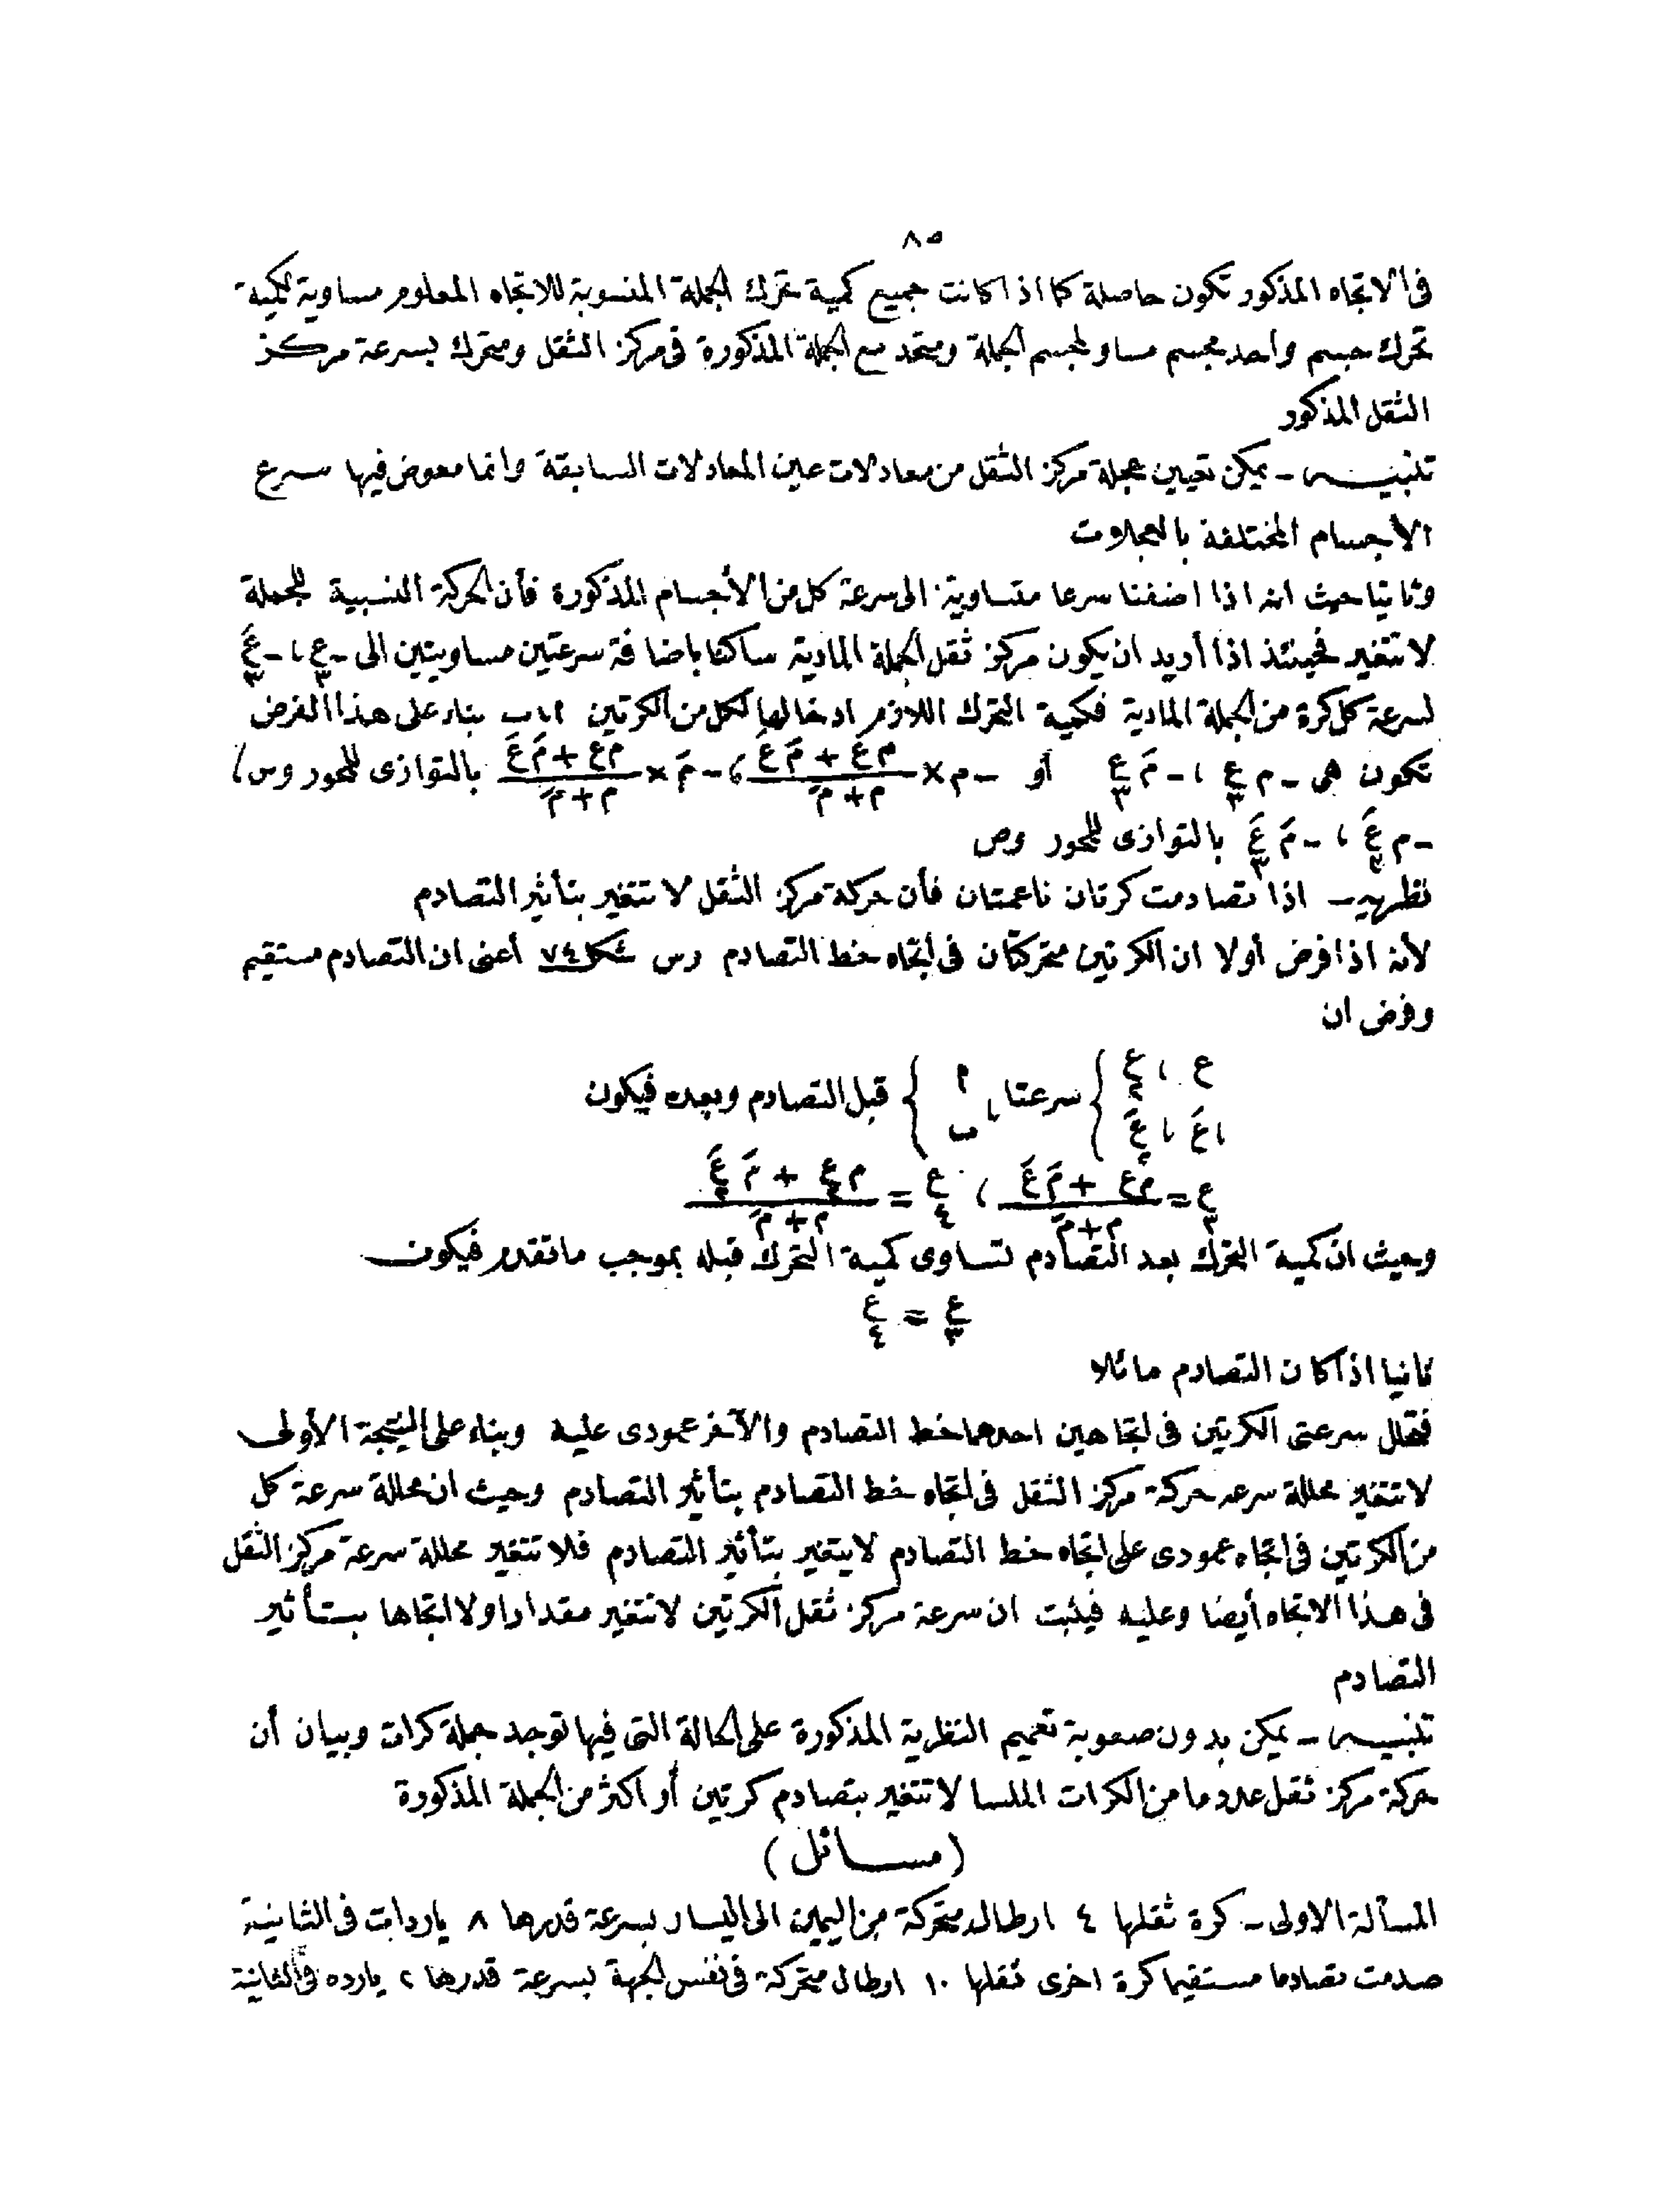 ٨٥
فى الاتجاه المذكور تكون حاصلة كما اذا كانت جميع كمية تحرك الجملة المنسوبة للاتجاه المعلوم مساوية لكمية
تحرك جسم واحد مجسم مساو لمجسم الجملة ومتحد مع الجملة المذكورة فى مركز الثقل ومتحرك بسرعة مركز
الثقل المذكور
تنبيه - يمكن تعيين عجلة مركز الثقل من معادلات عين المعادلات السابقة وانما معوض فيها سرع
الأجسام المختلفة بالعجلات
وثانيا حيث انه اذا اضفنا سرعا متساوية الى سرعة كل من الأجسام المذكورة فأن الحركة النسبية للجملة
لا تتغير فحينئذ اذا أريد ان يكون مركز ثقل الجملة المادية ساكنا باضافة سرعتين مساويتين الى -ع٣ ، -عَ٣
لسرعة كل كرة من الجملة المادية فكمية التحرك اللازم ادخالها لكل من الكرتين ا ، ب بناء على هذا الفرض
تكون هى - م ع٣ ، - مَ ع٣ أو - م × (م ع + مَ عَ)/(م + مَ) ، - مَ × (م ع + مَ عَ)/(م + مَ) بالتوازى للمحور وس ،
- م عَ٣ ، - مَ عَ٣ بالتوازى للمحور وص
نظرية - اذا تصادمت كرتان ناعمتان فأن حركة مركز الثقل لا تتغير بتأثير التصادم
لأنه اذا فرض أولا ان الكرتين متحركتان فى اتجاه خط التصادم رس شكل ٧٤ أعنى ان التصادم مستقيم
وفرض ان
ع ، ع٢ } سرعتا { ا قبل التصادم وبعده فيكون
، عَ ، عَ٢ } { ، ب
ع٣ = (م ع + مَ عَ)/(م + مَ) ، ع٤ = (م ع٢ + مَ عَ٢)/(م + مَ)
وحيث ان كمية التحرك بعد التصادم تساوى كمية التحرك قبله بموجب ما تقدم فيكون
ع٣ = ع٤
ثانيا اذا كان التصادم مائلا
فتحلل سرعتى الكرتين فى اتجاهين احدهما خط التصادم والآخر عمودى عليه وبناء على النتيجة الأولى
لا تتغير محللة سرعه حركة مركز الثقل فى اتجاه خط التصادم بتأثير التصادم وحيث ان محللة سرعة كل
من الكرتين فى اتجاه عمودى على اتجاه خط التصادم لا يتغير بتأثير التصادم فلا تتغير محللة سرعة مركز الثقل
فى هذا الاتجاه أيضا وعليه فيثبت ان سرعة مركز ثقل الكرتين لا تتغير مقدارا ولا اتجاها بتأثير
التصادم
تنبيه - يمكن بدون صعوبة تعميم النظرية المذكورة على الحالة التى فيها توجد جملة كرات وبيان أن
حركة مركز ثقل عدد ما من الكرات الملسا لا تتغير بتصادم كرتين أو اكثر من الجملة المذكورة
(مسائل)
المسألة الاولى - كرة ثقلها ٤ ارطال متحركة من اليمين الى اليسار بسرعة قدرها ٨ ياردات فى الثانية
صدمت تصادما مستقيما كرة اخرى ثقلها ١٠ ارطال متحركة فى نفس الجهة بسرعة قدرها ٢ يارده فى الثانية